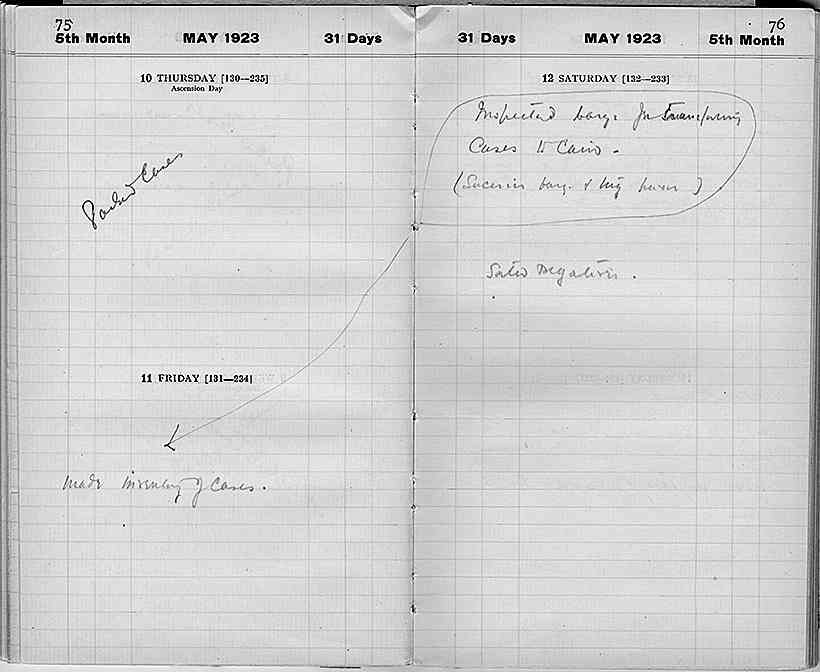 75
5th Month MAY 1923 31 Days
10 THURSDAY [130—235]
Ascension Day
Packed Cases
11 FRIDAY [131—234]
Made inventory of Cases.
76
31 Days MAY 1923 5th Month
12 SATURDAY [132—233]
Inspected barge for transferring
Cases to Cairo -
( barge &
Sorted Negatives.